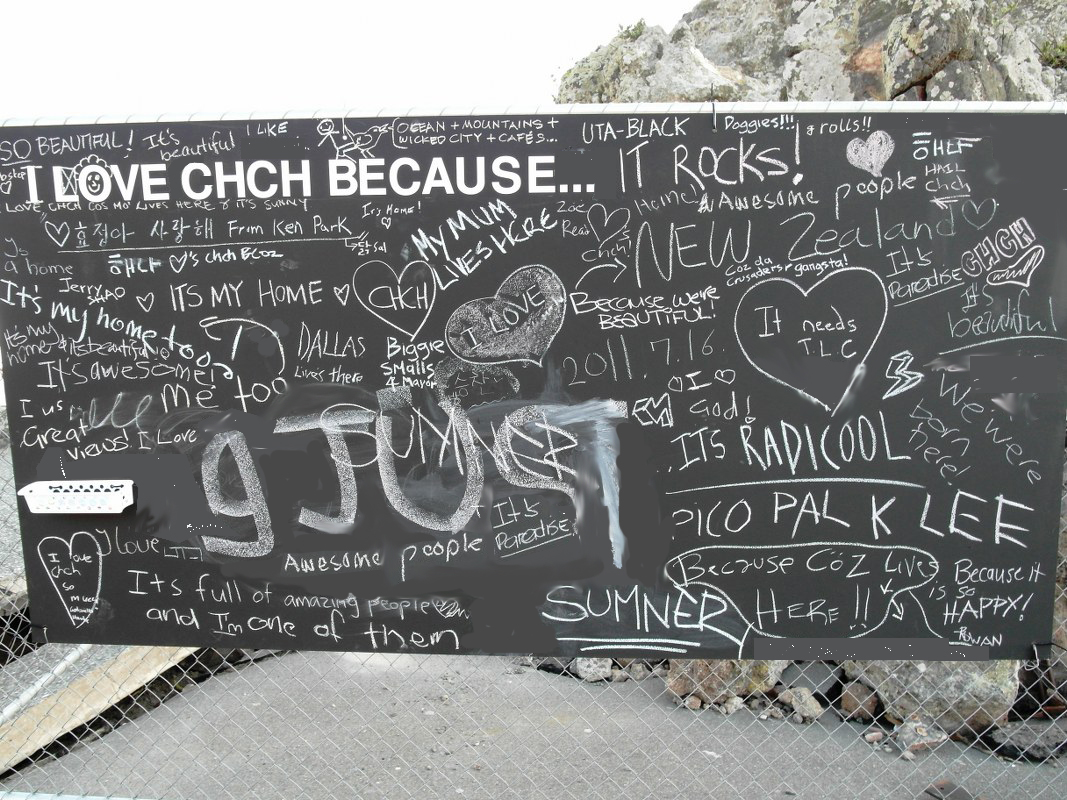 SO BEAUTIFUL!
It's beautiful
I LIKE
OCEAN + MOUNTAINS +
WICKED CITY + CAFÉS...
UTA-BLACK
Doggies!!!
& rolls!!
I LOVE CHCH BECAUSE...
IT ROCKS!
people
HAIL
chch
I LOVE CHCH COS MO LIVES HERE & IT'S SUNNY
Its Home!
Home!
Awesome
사랑해 From Ken Park
MY MUM
LIVES HERE
Zoe
Read
chch!
NEW Zealand
CHCH
a home
♥'s chch
Coz da
crusaders r gangsta!
It's
Paradise
It's
beautiful
Jerry
ITS MY HOME
CHCH
I LOVE
Because we're
BEAUTIFUL!
It needs
T.L.C
It's my home too
DALLAS
Lives there
Biggie
SMalls
4 Mayor
2011. 7. 16.
It's awesome!
me too
I ♡
God!
We were
born
here!
Great
views! I Love
g JUST
ITS RADICOOL
PICO PAL K LEE
It's
Paradise!
I love
Chch
so
I love
Awesome people
Because Coz Lives
HERE!!
Because it
is so
HAPPY!
ROWAN
It's full of amazing people
and I'm one of them
SUMNER